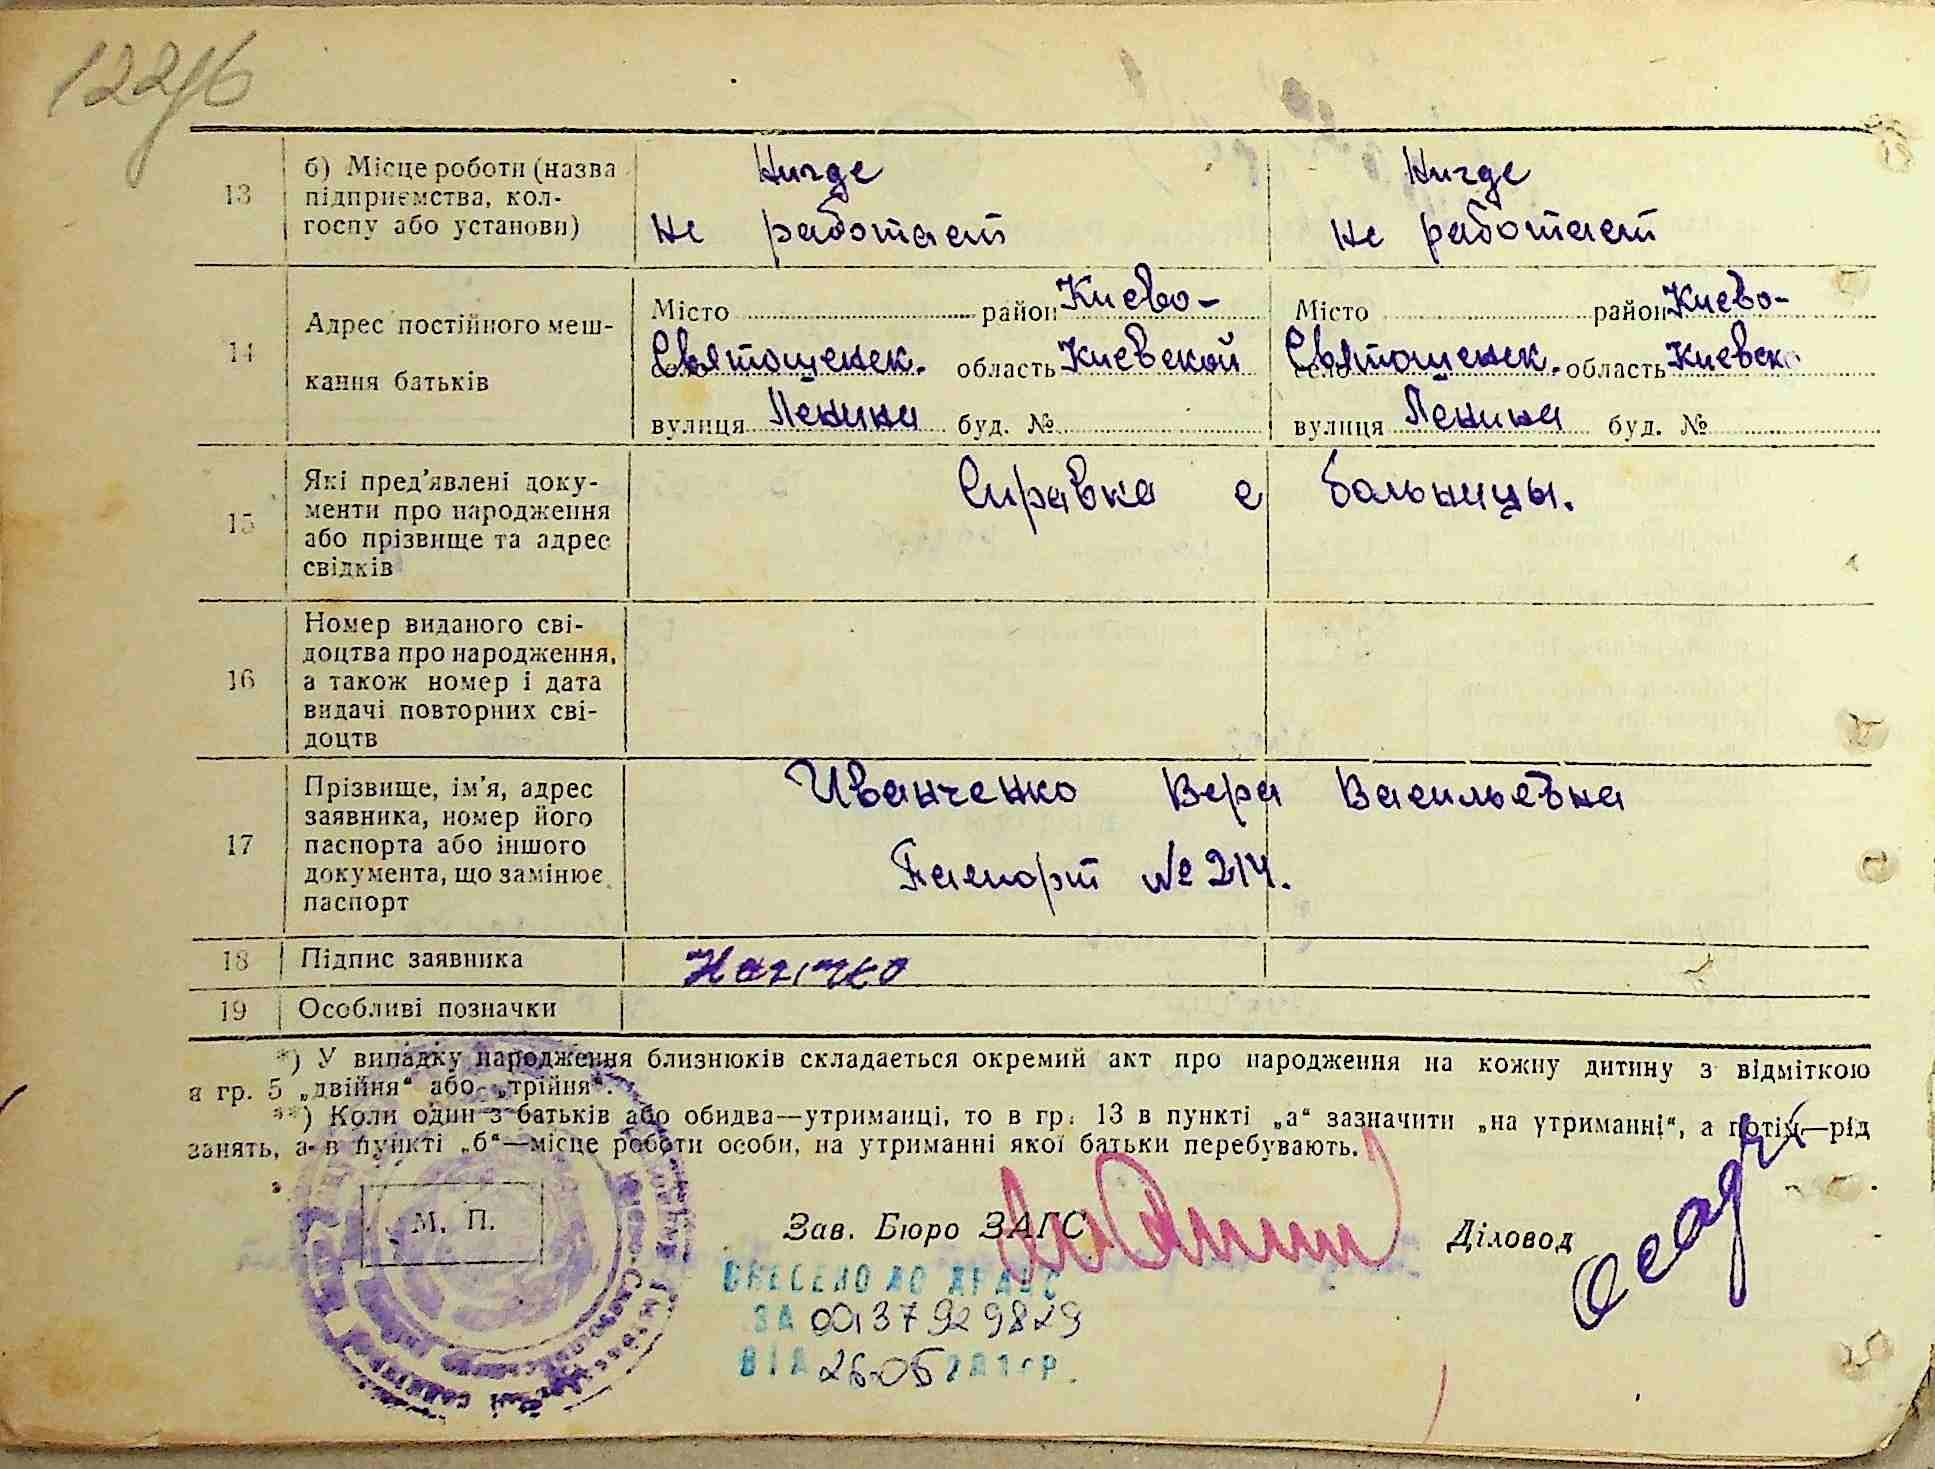 13
б) Місце роботи (назва
підприємства, кол-
госпу або установи)
Нигде
не работает
Нигде
не работает
14
Адрес постійного меш-
кання батьків
Місто район Киево-
Святошенск. область Киевской
вулиця Ленина буд. №
Місто район Киево-
Святошенск. область Киевск
вулиця Ленина буд. №
15
Які пред'явлені доку-
менти про народження
або прізвище та адрес
свідків
Справка с больницы.
16
Номер виданого сві-
доцтва про народження,
а також номер і дата
видачі повторних сві-
доцтв
17
Прізвище, ім'я, адрес
заявника, номер його
паспорта або іншого
документа, що замінює
паспорт
Иванченко Вера Васильевна
Паспорт № 214.
18
Підпис заявника
19
Особливі позначки
*) У випадку народження близнюків складається окремий акт про народження на кожну дитину з відміткою
в гр. 5 „двійня“ або „трійня“.
**) Коли один з батьків або обидва—утриманці, то в гр. 13 в пункті „а“ зазначити „на утриманні“, а потім—рід
занять, а в пункті „б“—місце роботи особи, на утриманні якої батьки перебувають.
М. П.
Зав. Бюро ЗАГС
Діловод
ВНЕСЕНО ДО ДРАЦС
ЗА 00137929829
ВІД 26.05